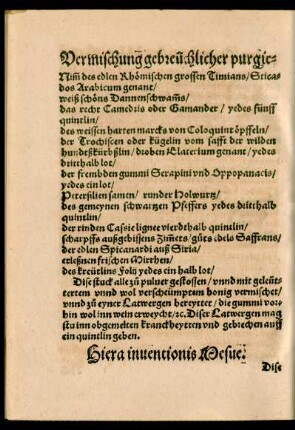 Vermischung gebreüchlicher purgie-
Nim̃ des edlen Rhömischen grossen Timians/ Sticas
dos Arabicum genant/
weiß schöns Dannenschwam̃s/
das recht Camedris oder Gamander / yedes fünff
quintlin/
des weissen harten marcks von Coloquint öpffeln/
der Trochiscen oder kügelin vom safft der wilden
hundtskürbßlin/ droben Elaterium genant/ yedes
dritthalb lot/
der frembden gummi Serapini vnd Oppopanacis/
yedes ein lot/
Petersilien samen/ runder Holwurtz/
des gemeynen schwartzen Pfeffers yedes dritthalb
quintlin/
der rinden Cassie lignee vierdthalb quintlin/
scharpffs außgebissens Zim̃ets/ gůts edels Saffrans/
der edlen Spicanardi auß Siria/
erleßnen frischen Mirrhen/
des kreütlins Folij yedes ein halb lot/
Dise stuck alle zů puluer gestossen / vnnd mit geleüt-
tertem vnnd wol verscheümptum honig vermischet/
vnnd zů eyner Latwergen bereyttet / die gummi vor-
hin wol inn wein erweycht/ ꝛc. Diser Latwergen mag
stu inn obgemelten kranckheyten vnd gebrechen auff
ein quintlin geben.
Hiera inuentionis Mesue.
Dise